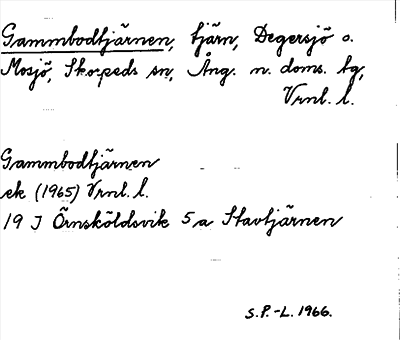 Gammbodtjärnen, tjärn, Degersjö o.
Mosjö, Skorpeds sn, Ång. n. doms. tg,
Vrnl. l.
Gammbodtjärnen
ek (1965) Vrnl. l.
19 J Örnsköldsvik 5 a Stavtjärnen
S.P.-L. 1966.